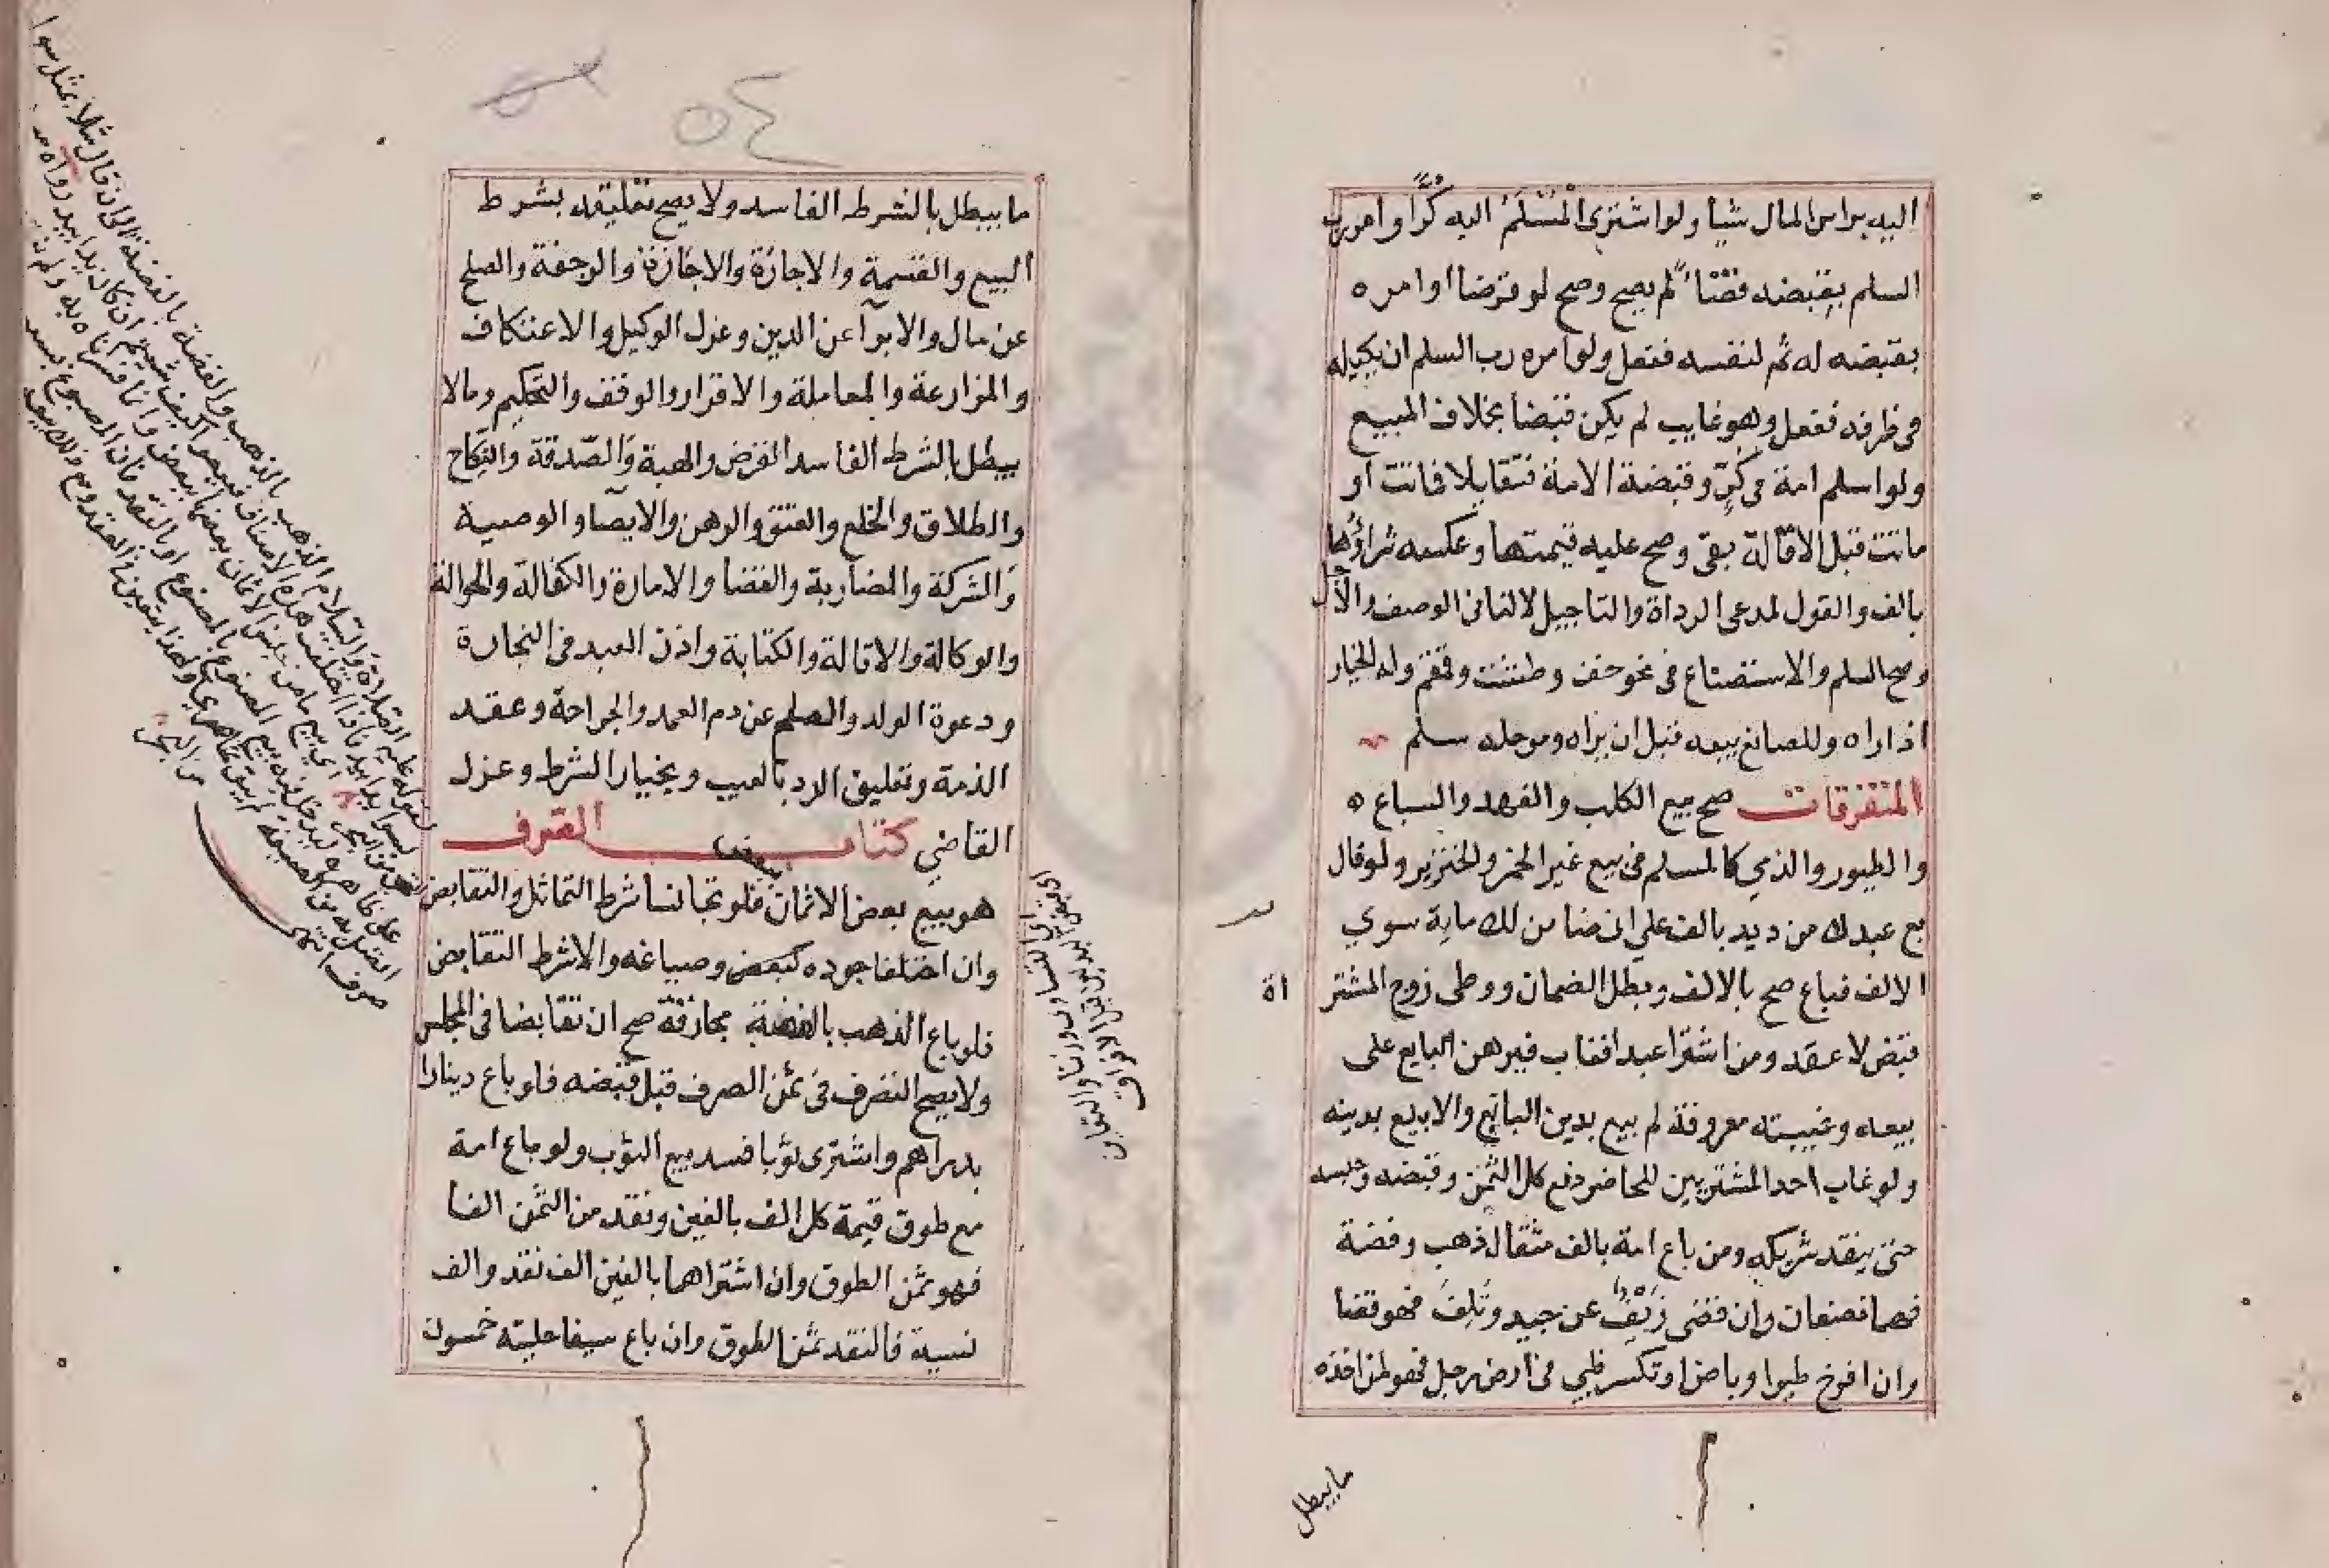 اليه براس المال شيأ ولو اشترى المُسْلَمُ اليه كُرًّا وامر رب
السلم بقبضه قضاءً لم يصح وصح لو قرضا او امره
بقبضه له ثم لنفسه ففعل ولو امره رب السلم ان يكيله
فى ظرفه ففعل وهو غايب لم يكن قبضا بخلاف المبيع
ولو اسلم امة فى كُرٍّ وقبضة الامة فتقايلا فماتت او
ماتت قبل الاقالة بقى وصح عليه قيمتها وعكسه شراؤُها
بالف والقول لمدعى الرداة والتاجيل لا لنافى الوصف والأجل
وصح السلم والاستصناع فى نحو خف وطشت وقمقم وله الخيار
اذا راه وللصانع بيعه قبل ان يراه وموجله سلم
المتفرقات صح بيع الكلب والفهد والسباع ه
والطيور والذي كالمسلم فى بيع غير الخمر والخنزير ولو قال
بع عبدك من ديد بالف على انى ضامن لك ماية سوي
الالف فباع صح بالالف وبطل الضمان ووطى زوج المشتر
اة
قبض لا عقد ومن اشترا عبدا فغاب فبرهن البايع على
بيعه وغيبته معروفة لم بيع بدين البائع والا بيع بدينه
ولو غاب احد المشتريين للحاضر دفع كل الثمن وقبضه وحبسه
حتى ينقد شريكه ومن باع امة بالف مثقال ذهب وفضة
فهما نصفان وان قضى زَيْفًا عن جيد وتَلِفَ فهو قضا
وان افرخ طيرا وباض او تكسر ظبي فى أرض رجل فهو لمن اخذه
ما يبطل
٥٤
ما يبطل بالشرط الفاسد ولا يصح تعليقه بشرط
البيع والقسمة والاجارة والاجازة والرجعة والصلح
عن مال والابرآ عن الدين وعزل الوكيل والاعتكاف
والمزارعة والمعاملة والاقرار والوقف والتحكيم ومالا
يبطل بالشرط الفاسد القرض والهبة والصّدقة والنكاح
والطلاق والخلع والعتق والرهن والايصآ والوصية
والشركة والمضاربة والقضا والامارة والكفالة والحوالة
والوكالة والاقالة والكتابة واذن العبد فى التجارة
ودعوة الولد والصلح عن دم العمد والجراحة وعقد
الذمة وتعليق الرد بالعيب وبخيار الشرط وعزل
القاضي كتاب الصرف
هو بيع بعض الاثمان ببعض فلو تجانسا شرط التماثل والتقابض
وان اختلفا جوده كبعض وصياغه والاشرط التقابض
فلو باع الذهب بالفضة مجازفة صح ان تقابضا فى المجلس
ولا يصح التصرف فى ثمن الصرف قبل قبضه فلو باع دينارا
بدراهم واشترى ثوبا فسد بيع الثوب ولو باع امة
مع طوق قيمة كل الف بالفين ونقد من الثمن الفا
فهو ثمن الطوق وان اشتراهما بالفين الف نقد والف
نسية فالنقد ثمن الطوق وان باع سيفا حليته خمسون
اى التساوى وزنا والتقابض
بالبراجم قبل الافتراق
لقوله عليه الصلاة والسلام الذهب بالذهب والفضة بالفضة الى ان قال مثلا بمثل سوا
بسوا يدا بيد فاذا اختلفت هذه الاصناف فبيعوا كيف شئتم اذا كان يدا بيد رواه
اى بيع ما من جنس الاثمان بعضها ببعض وانما فسرناه به ولم
من البحر